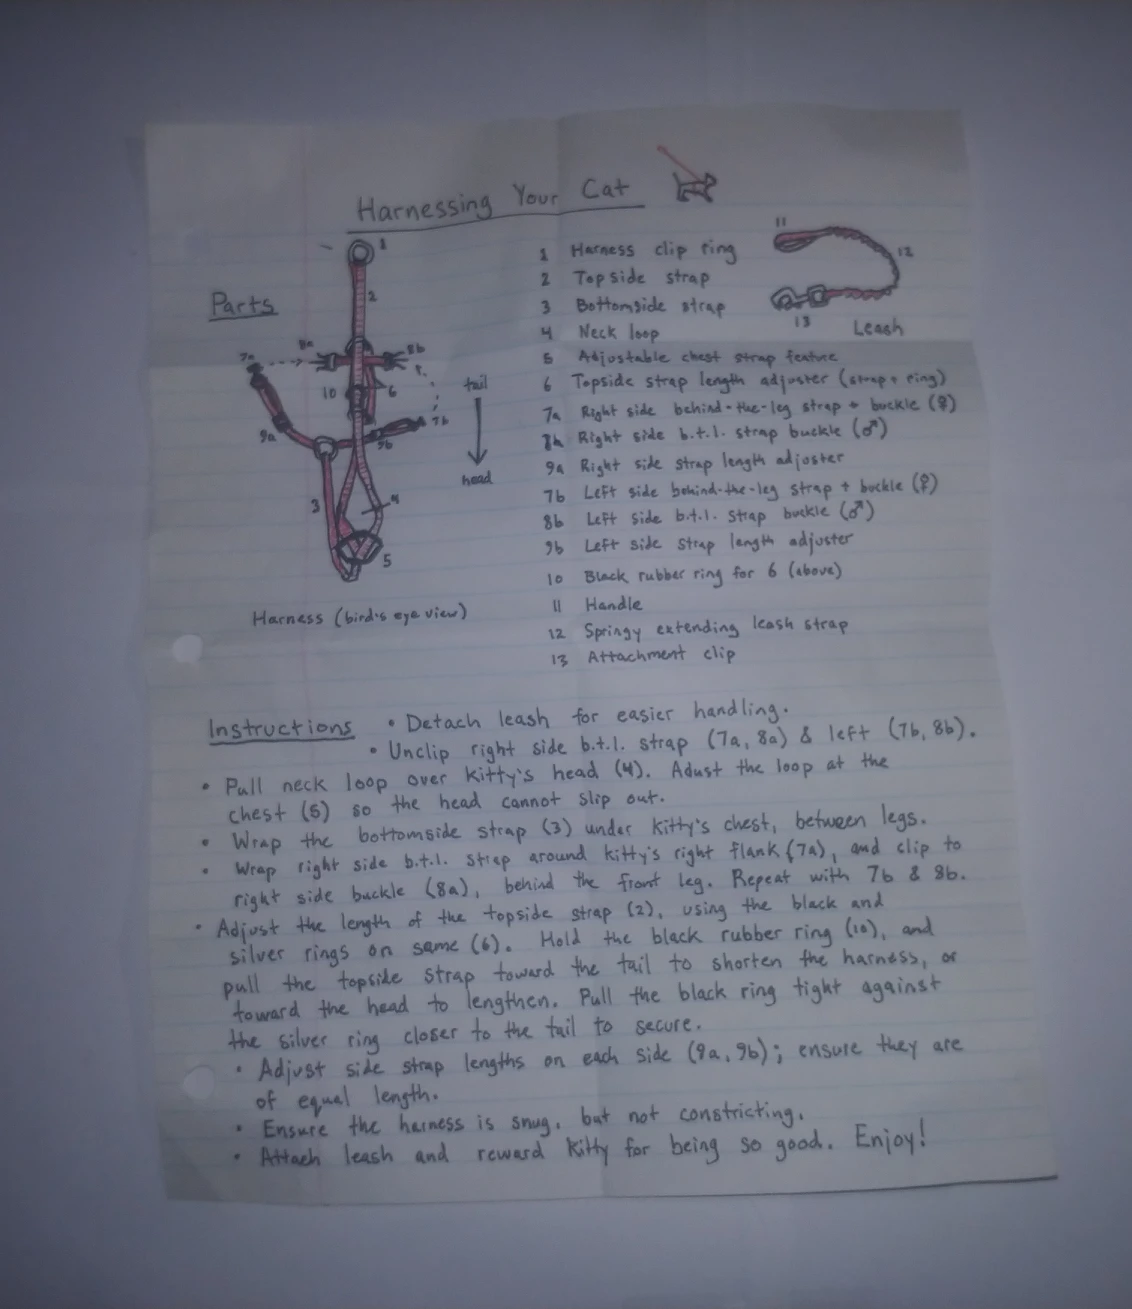 Harnessing Your Cat
Parts
1
2
8a
8b
7a
10
6
7b
9a
9b
3
4
5
tail
head
Harness (bird's eye view)
1 Harness clip ring
2 Topside strap
3 Bottomside strap
4 Neck loop
5 Adjustable chest strap feature
6 Topside strap length adjuster (strap + ring)
7a Right side behind-the-leg strap + buckle (♀)
8a Right side b.t.l. strap buckle (♂)
9a Right side strap length adjuster
7b Left side behind-the-leg strap + buckle (♀)
8b Left side b.t.l. strap buckle (♂)
9b Left side strap length adjuster
10 Black rubber ring for 6 (above)
11 Handle
12 Springy extending leash strap
13 Attachment clip
11
12
13
Leash
Instructions • Detach leash for easier handling.
• Unclip right side b.t.l. strap (7a, 8a) & left (7b, 8b).
• Pull neck loop over Kitty's head (4). Adust the loop at the
chest (5) so the head cannot slip out.
• Wrap the bottomside strap (3) under Kitty's chest, between legs.
• Wrap right side b.t.l. strap around kitty's right flank (7a), and clip to
right side buckle (8a), behind the front leg. Repeat with 7b & 8b.
• Adjust the length of the topside strap (2), using the black and
silver rings on same (6). Hold the black rubber ring (10), and
pull the topside strap toward the tail to shorten the harness, or
toward the head to lengthen. Pull the black ring tight against
the silver ring closer to the tail to secure.
• Adjust side strap lengths on each side (9a, 9b); ensure they are
of equal length.
• Ensure the harness is snug, but not constricting.
• Attach leash and reward Kitty for being so good. Enjoy!